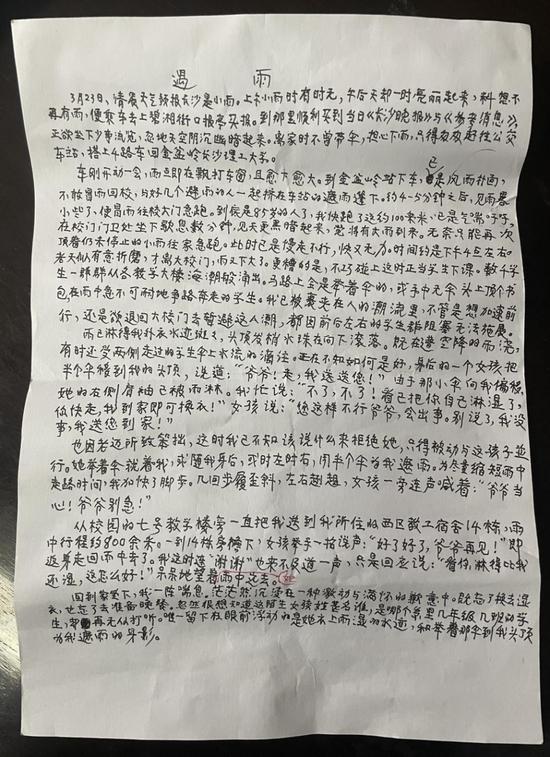 遇 雨
3月23日,清晨天气预报长沙是小雨。上午小雨时有时无,午后天却一时亮丽起来,料想不
再有雨,便乘车去上碧湘街口报亭买报。到那里顺利买到当日《长沙晚报》与《参考消息》,
正欲坐下少事流览,忽地天空阴沉幽暗起来。离家时不曾带伞,担心下雨,只得匆匆赶往公交
车站,搭上4路车回金盆岭长沙理工大学。
车刚开动一会,雨点即在飘打车窗,且愈下愈大。到金盆岭站下车,已是风雨扑面,
不敢冒雨回校,与好几个避雨的人一起挤在车站的遮雨篷下。约4-5分钟之后,见雨暴
小些了,便冒雨往校大门急跑。到底是85岁的人了,我快跑了这约100米,已是气喘吁吁,
在校门门卫处坐下歇息数分钟,见天更黑暗起来,恐将有大雨到来。无奈只能再次
顶着仍未停止的小雨往家急跑。此时已是慢走不行,快又无力。时间约是下午4点左右
老天似有意折磨,才离大校门,雨又下大了。更糟的是,不巧碰上这时正当学生下课。数千学
生一群群从各教学大楼海潮般涌出。马路上全是举着伞的,或手中无伞头上顶个书
包在雨中急不可耐地争路奔走的学生。我已被裹夹在人的潮流里,不管是想加速前
行,还是欲退回大校门去暂避这人潮,都因前后左右的学生群阻塞无法施展。
雨已淋得我外衣水迹斑斑,头顶发梢水珠在向下滚落。既在遭空降的雨浇,
有时还受两侧走过的学生伞上水流的滴注。正在不知如何是好,身后的一个女孩把
半个伞移到我的头顶,说道:“爷爷!走,我送送您!”由于那小伞向我偏移,
她的右侧肩袖已被雨淋。我忙说:“不了,不了!看已把你自己淋湿了,
你快走,我到家即可换衣!”女孩说:“您这样不行爷爷,会出事。别说了,我没
事,我送您到家!”
也因老迈所致笨拙,这时我已不知该说什么来拒绝她,只得被动与这孩子并
行。她举着伞挽着我,或随我身后,或时左时右,用半个伞为我遮雨。为尽量缩短雨中
走路时间,我加快了脚步。几回步履歪斜,左右趔趄,女孩一旁连声喊着:“爷爷当
心!爷爷别急!”
从校园的七号教学楼旁一直把我送到我所住的西区教工宿舍14栋,雨
中行程约800余米。一到14栋旁檐下,女孩举手一招说声:“好了好了,爷爷再见!”即
返身走回雨中去了。我这时连“谢谢”也来不及道一声,只是回应说:“看你,淋得比我
还湿,这怎么好!”呆呆地望着她雨中远去。
回到家里下,我一阵喘息,茫茫然沉浸在一种激动与满怀的歉意中。既忘了换去湿
衣,也忘了去准备晚餐。忽然很想知道这陌生女孩姓甚名谁,是哪个系里几年级几班的学
生,却再无从打听。唯一留下在眼前浮动的是她衣上雨湿的水迹,和举着那伞到我头顶
为我遮雨的身影。